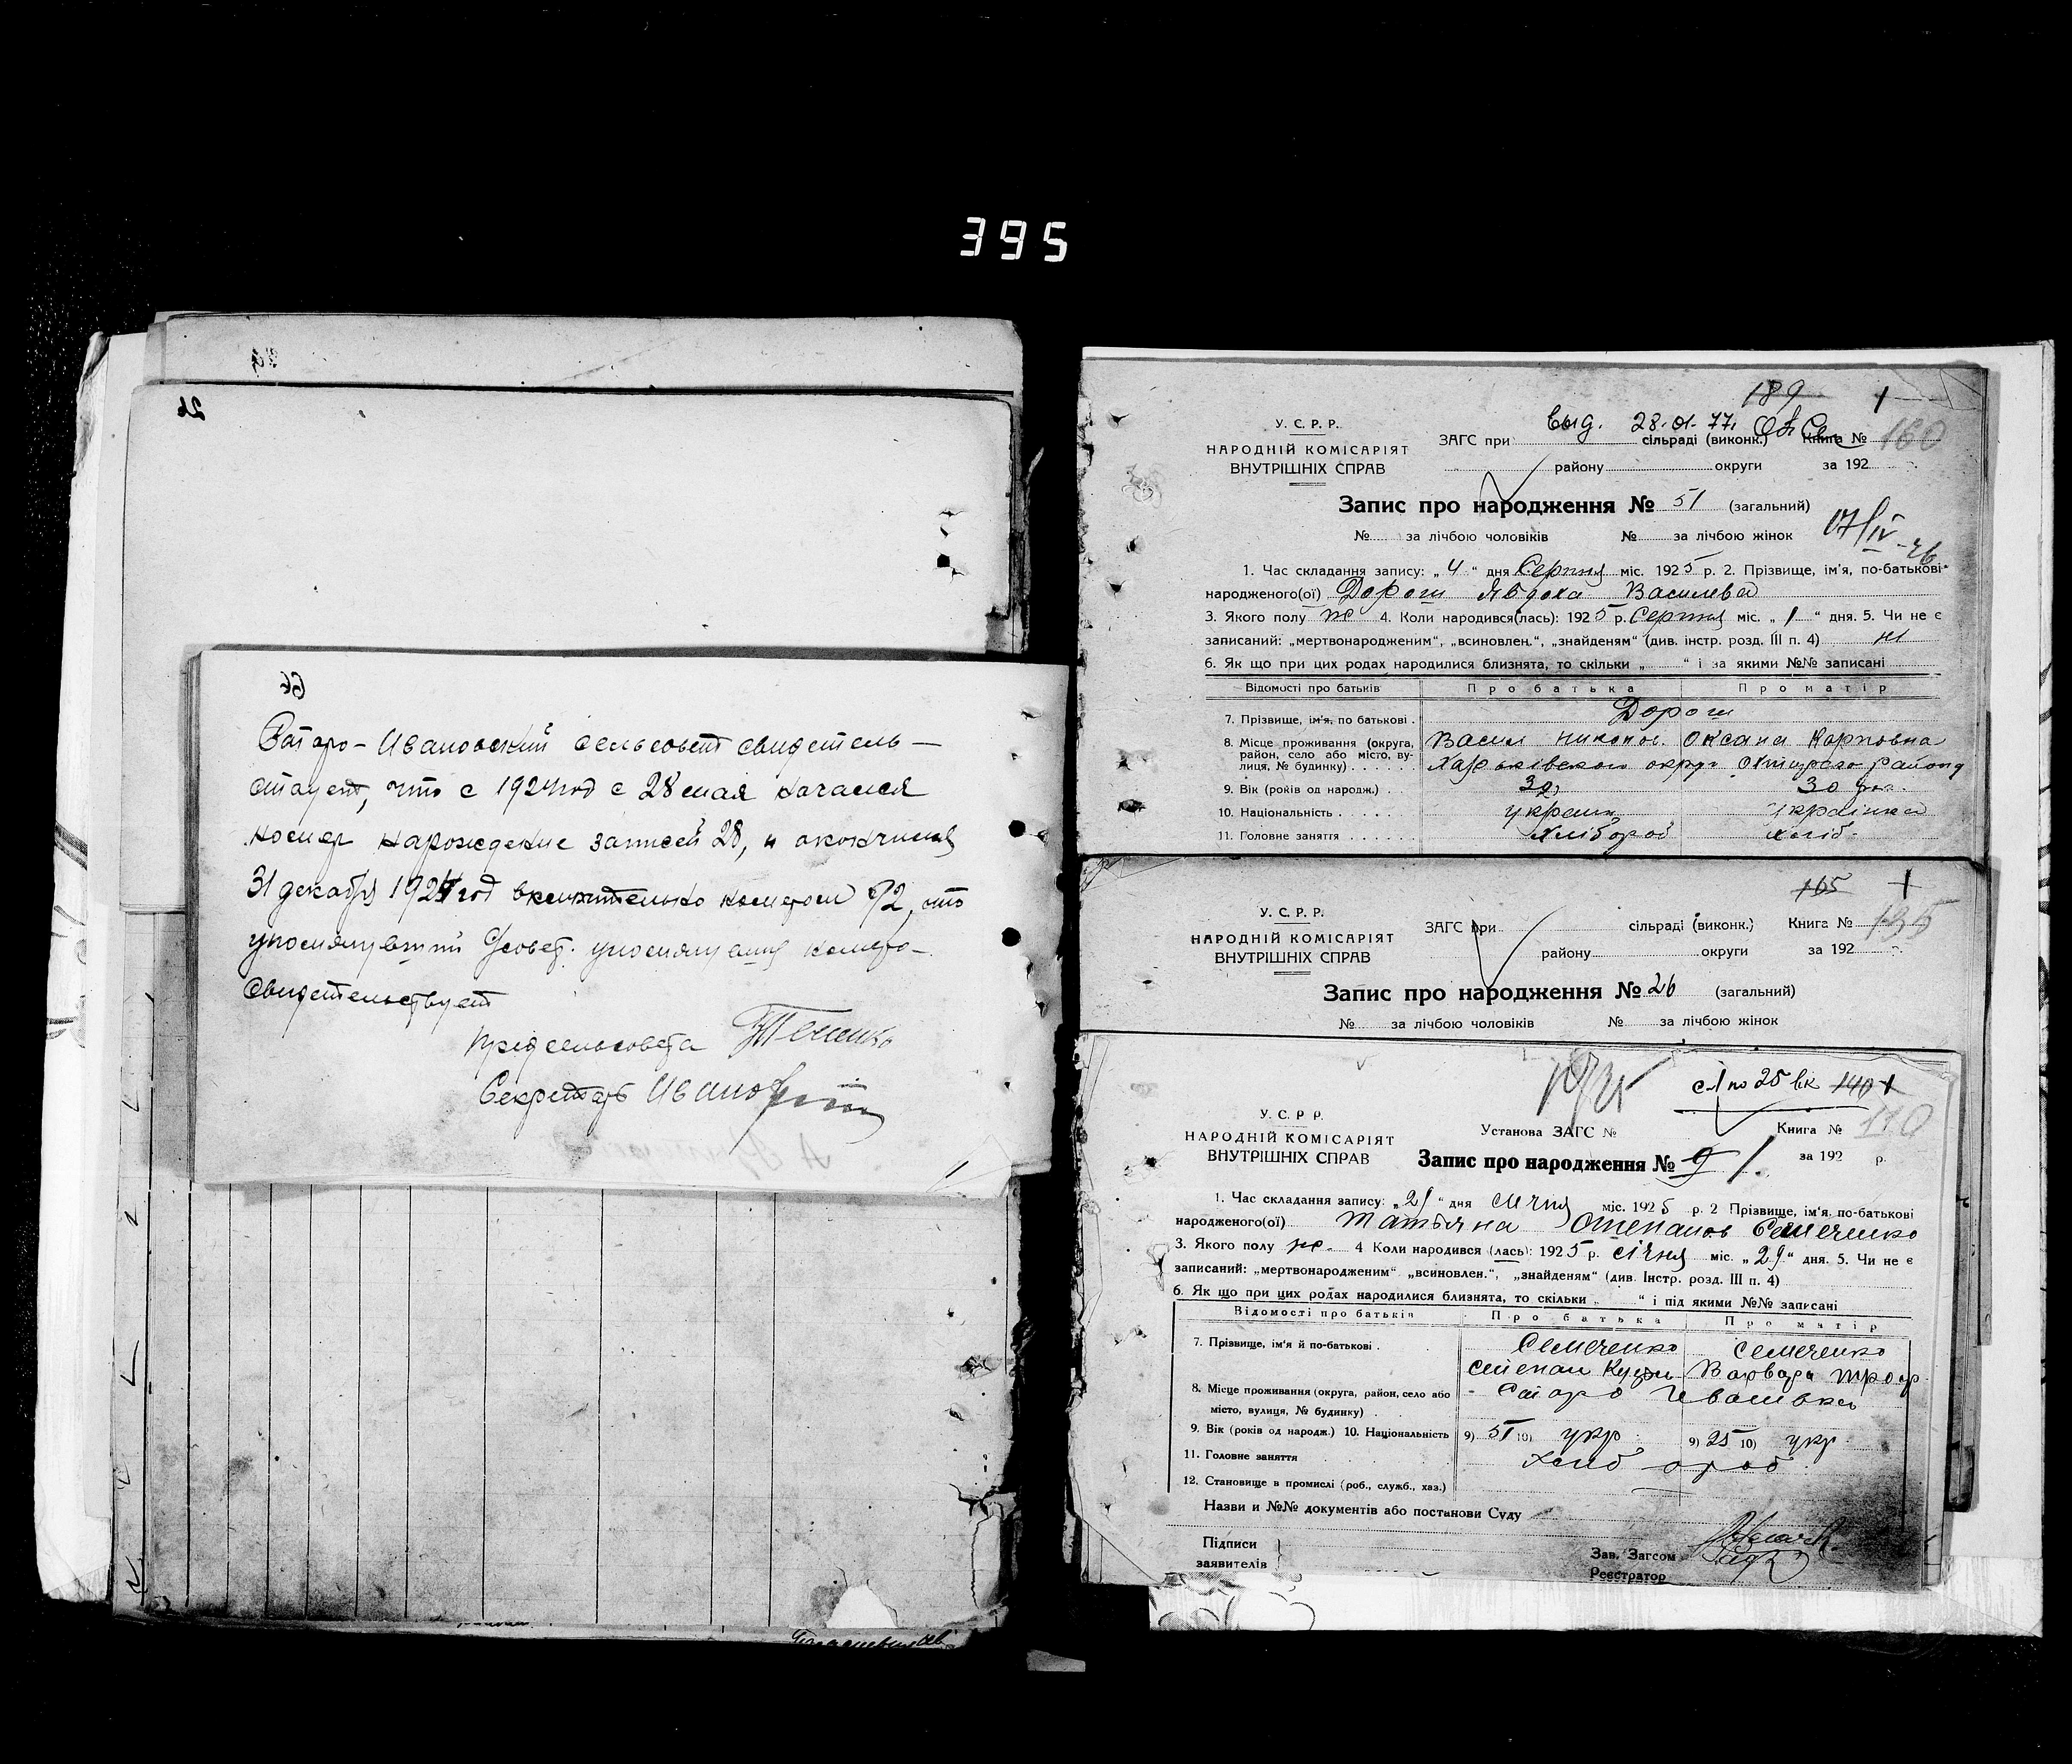 395
26
Старо-Ивановский сельсовет свидетель-
стует, что с 1924 год с 28 мая начался
номер нарождение записей 28, и окончился
31 декабря 1924 год включительно номером 92, что
упомянутый совет. упомянутых номеров
свидетельствует
Предсельсовета
Секретарь
189 1
Выд. 28-01-77.
У. С. Р. Р.
НАРОДНІЙ КОМІСАРІЯТ
ВНУТРІШНІХ СПРАВ
ЗАГС при сільраді (виконк.) Книга № 160
району округи за 192
Запис про народження № 51 (загальний)
№ за лічбою чоловіків № за лічбою жінок
17/IV-46
1. Час складання запису: „4“ дня Серпня міс. 1925 р. 2. Прізвище, ім'я, по-батькові
народженого(ої) Дорош Явдоха Василева
3. Якого полу ж 4. Коли народився(лась): 1925 р. Серпня міс. „1“ дня. 5. Чи не є
записаний: „мертвонародженим“, „всиновлен.“, „знайденям“ (див. інстр. розд. III п. 4) ні
6. Як що при цих родах народилися близнята, то скільки „ “ і за якими №№ записані
Відомості про батьків Про батька Про матір
7. Прізвище, ім'я, по батькові. Дорош
8. Місце проживання (округа, район, село або місто, вулиця, № будинку) Васил Никол. Оксана Карповна
Харьківского округ району
9. Вік (років од народж.) 32 30
10. Національність україн українка
11. Головне заняття Хлібороб хліб.
165 1
У. С. Р. Р.
НАРОДНІЙ КОМІСАРІЯТ
ВНУТРІШНІХ СПРАВ
ЗАГС при сільраді (виконк.) Книга № 135
району округи за 192
Запис про народження № 26 (загальний)
№ за лічбою чоловіків № за лічбою жінок
с 1 по 25 вк 140 1
У. С. Р. Р.
НАРОДНІЙ КОМІСАРІЯТ
ВНУТРІШНІХ СПРАВ
Установа ЗАГС № Книга № 110
Запис про народження № 9 1. за 192 р.
1. Час складання запису: „21“ дня січня міс. 1925 р. 2 Прізвище, ім'я, по-батькові
народженого(ої) Татьяна Степанов Семеченко
3. Якого полу ж. 4 Коли народився (лась): 1925 р. січня міс. „29“ дня. 5. Чи не є
записаний: „мертвонародженим“ „всиновлен.“, „знайденям“ (див. Інстр. розд. III п. 4)
6. Як що при цих родах народилися близнята, то скільки „ “ і під якими №№ записані
Відомості про батьків Про батька Про матір
7. Прізвище, ім'я й по-батькові. Семеченко Семеченко
Степан Кузм Варвара Трофр
8. Місце проживання (округа, район, село або Старо Ивановка
місто, вулиця, № будинку)
9. Вік (років од народж.) 10. Національність 9) 51 10) укр. 9) 25 10) укр.
11. Головне заняття Хлібороб
12. Становище в промислі (роб., служб., хаз.)
Назви и №№ документів або постанови Суду
Підписи
заявителів
Зав. Загсом
Реєстратор